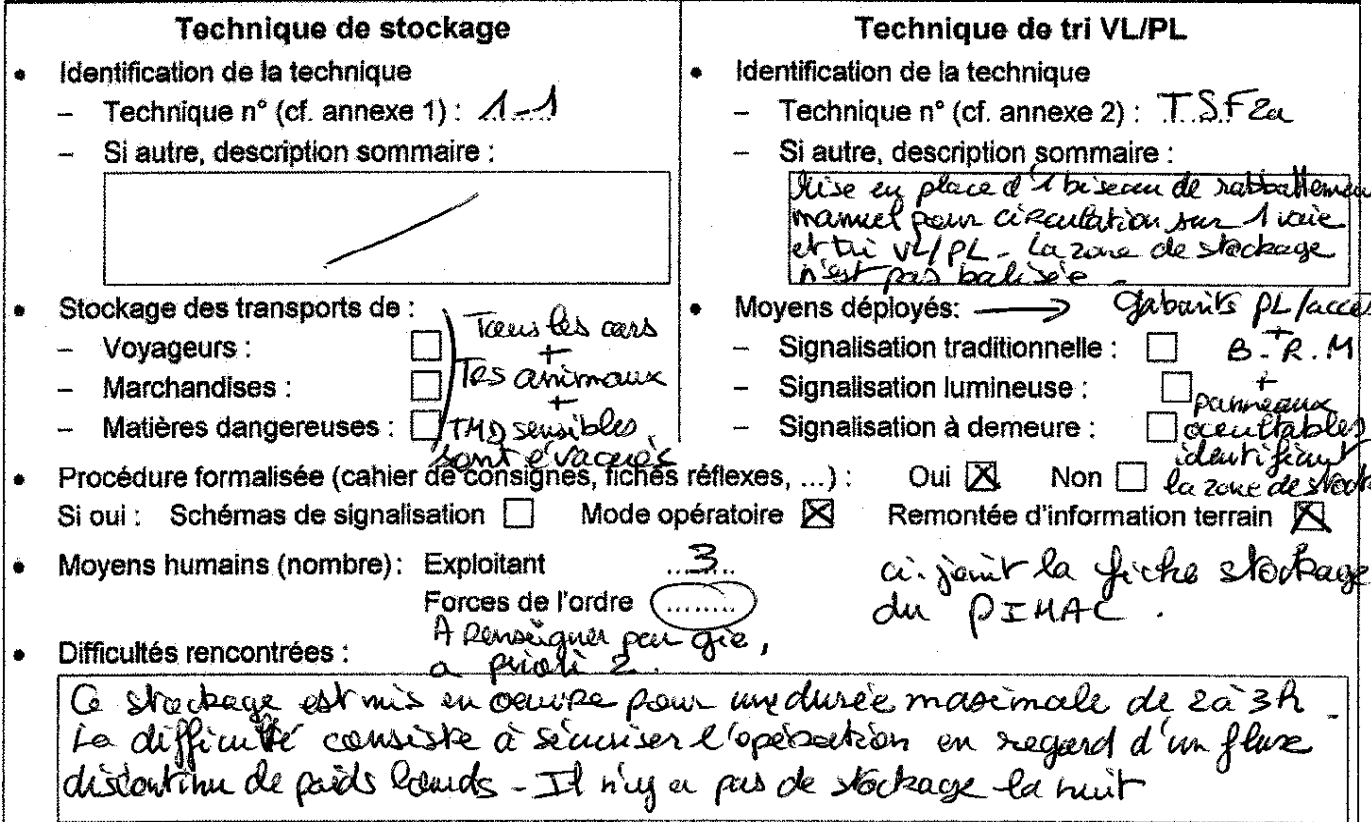 Technique de stockage
• Identification de la technique
– Technique n° (cf. annexe 1) : 1-1
– Si autre, description sommaire :
• Stockage des transports de :
– Voyageurs : ☐
– Marchandises : ☐
– Matières dangereuses : ☐
Tous les cars
+
Tes animaux
+
TMD sensibles
sont évacués
Technique de tri VL/PL
• Identification de la technique
– Technique n° (cf. annexe 2) : TSF2a
– Si autre, description sommaire :
Mise en place d'1 biseau de rabattement
manuel pour circulation sur 1 voie
et tri VL/PL - La zone de stockage
n'est pas balisée -
• Moyens déployés: → Gabarits PL/accès
– Signalisation traditionnelle : ☐ + B.R.M
– Signalisation lumineuse : ☐ +
panneaux
– Signalisation à demeure : ☐ occultables
identifiant
la zone de stock
• Procédure formalisée (cahier de consignes, fiches réflexes, ...) : Oui ☒ Non ☐
Si oui : Schémas de signalisation ☐ Mode opératoire ☒ Remontée d'information terrain ☒
• Moyens humains (nombre) : Exploitant 3
Forces de l'ordre ........
A renseigner par gie,
a priori 2.
ci-joint la fiche stockage
du PIMAC.
• Difficultés rencontrées :
Ce stockage est mis en oeuvre pour une durée maximale de 2 à 3h -
La difficulté consiste à sécuriser l'opération en regard d'un flux
discontinu de poids lourds - Il n'y a pas de stockage la nuit